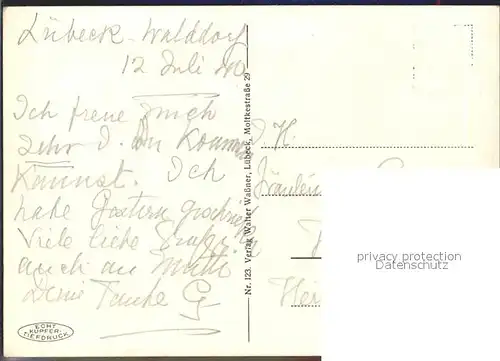 Lübeck-Walddorf
12 Juli 40
Ich freue mich
sehr d. Du kommen
kannst. Ich
habe gestern geschrieben
Viele liebe Grüße
auch an Mutti
Deine Tante G
Nr. 123. Verlag Walter Waßner, Lübeck, Moltkestraße 29
Z. H.
Fräulein
privacy protection
Datenschutz
ECHT
KUPFER-
TIEFDRUCK